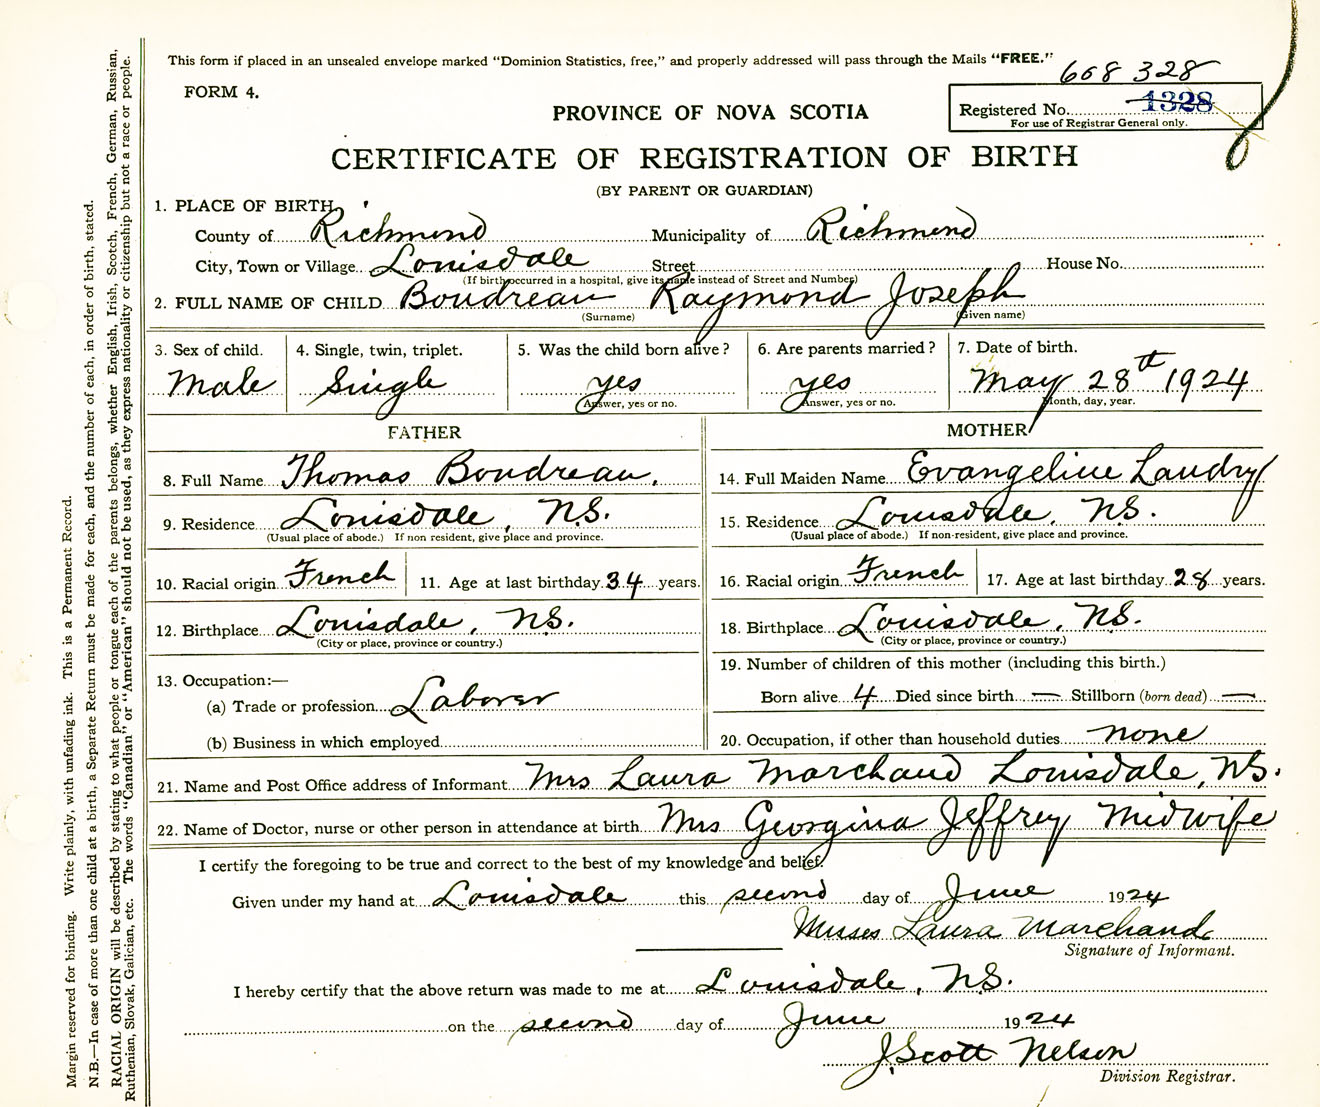 This form if placed in an unsealed envelope marked "Dominion Statistics, free," and properly addressed will pass through the Mails "FREE."
668 328
FORM 4.
PROVINCE OF NOVA SCOTIA
Registered No. 1328
For use of Registrar General only.
CERTIFICATE OF REGISTRATION OF BIRTH
(BY PARENT OR GUARDIAN)
1. PLACE OF BIRTH
County of Richmond Municipality of Richmond
City, Town or Village Louisdale Street House No.
(If birth occurred in a hospital, give its name instead of Street and Number)
2. FULL NAME OF CHILD Boudreau Raymond Joseph
(Surname) (Given name)
3. Sex of child. 4. Single, twin, triplet. 5. Was the child born alive? 6. Are parents married? 7. Date of birth.
Male Single yes yes May 28th 1924
Answer, yes or no. Answer, yes or no. Month, day, year.
FATHER MOTHER
8. Full Name Thomas Boudreau. 14. Full Maiden Name Evangeline Landry
9. Residence Louisdale, N.S. 15. Residence Louisdale, N.S.
(Usual place of abode.) If non resident, give place and province. (Usual place of abode.) If non-resident, give place and province.
10. Racial origin French 11. Age at last birthday 34 years. 16. Racial origin French 17. Age at last birthday 28 years.
12. Birthplace Louisdale, N.S. 18. Birthplace Louisdale, N.S.
(City or place, province or country.) (City or place, province or country.)
13. Occupation:— 19. Number of children of this mother (including this birth.)
(a) Trade or profession Laborer Born alive 4 Died since birth — Stillborn (born dead) —
(b) Business in which employed 20. Occupation, if other than household duties none
21. Name and Post Office address of Informant Mrs Laura Marchand Louisdale, N.S.
22. Name of Doctor, nurse or other person in attendance at birth Mrs Georgina Jeffrey Midwife
I certify the foregoing to be true and correct to the best of my knowledge and belief.
Given under my hand at Louisdale this second day of June 1924
Laura Marchand
Signature of Informant.
I hereby certify that the above return was made to me at Louisdale, N.S.
on the second day of June 1924
J. Scott Nelson
Division Registrar.
Margin reserved for binding. Write plainly, with unfading ink. This is a Permanent Record.
N.B.—In case of more than one child at a birth, a Separate Return must be made for each, and the number of each, in order of birth, stated.
RACIAL ORIGIN will be described by stating to what people or tongue each of the parents belongs, whether English, Irish, Scotch, French, German, Russian,
Ruthenian, Slovak, Galician, etc. The words "Canadian" or "American" should not be used, as they express nationality or citizenship but not a race or people.